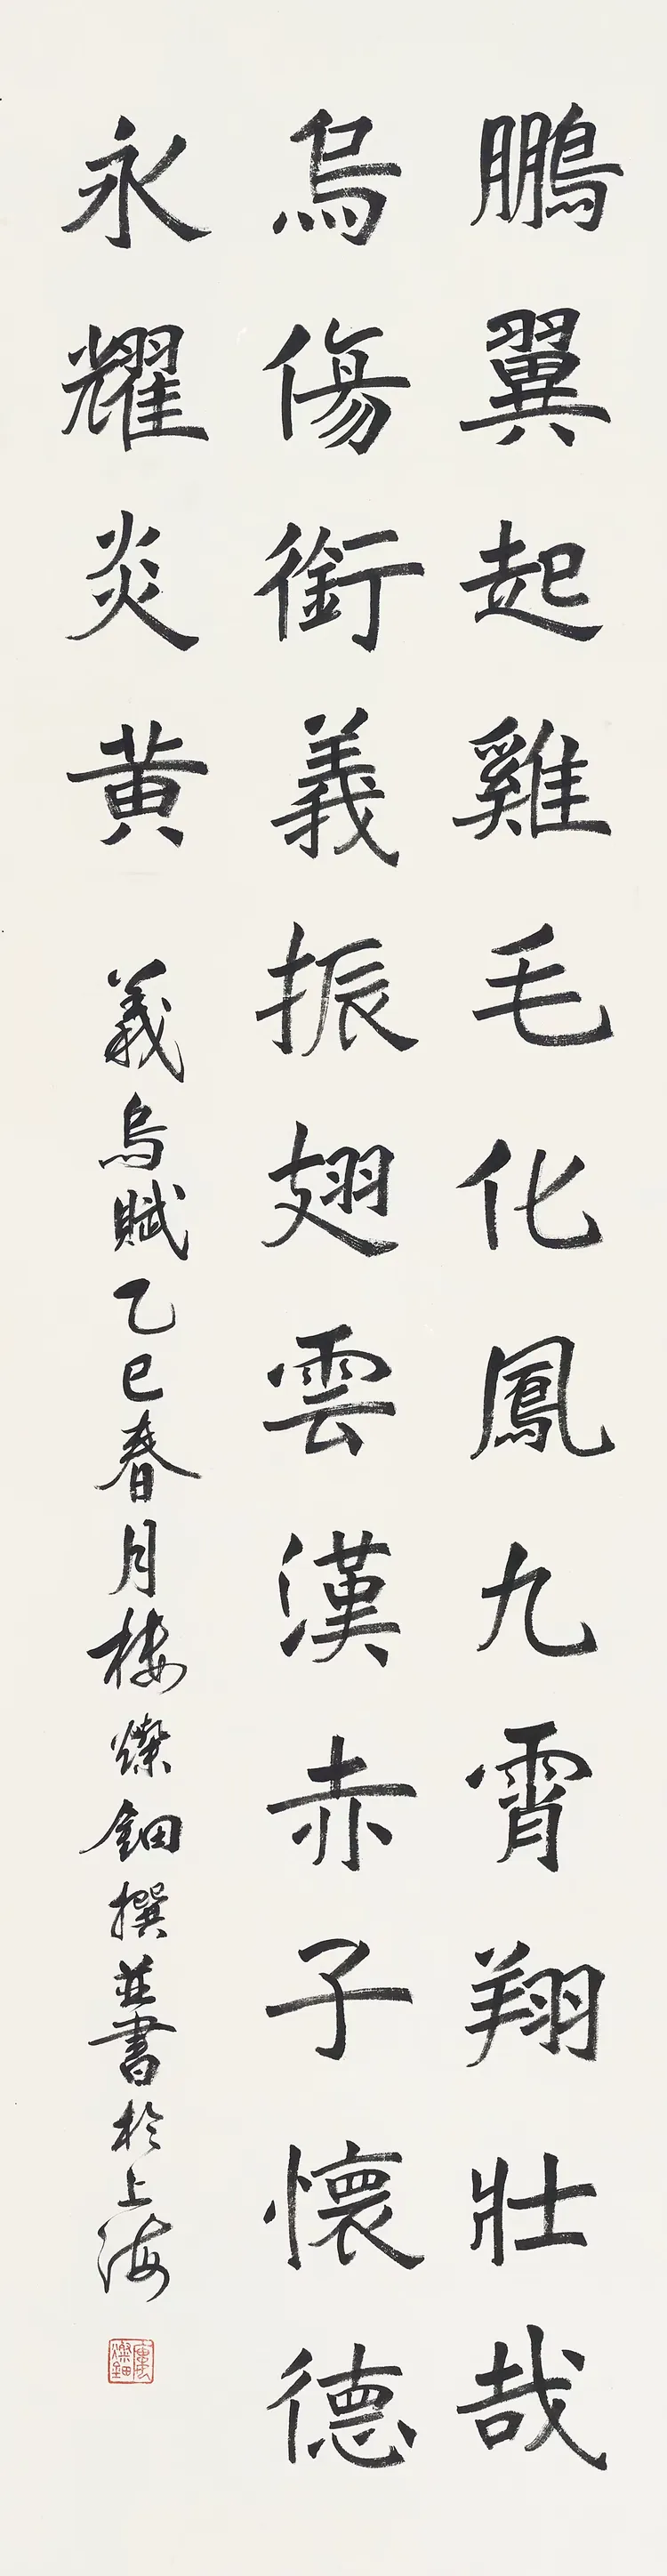 鵬翼起雞毛化鳳九霄翔壯哉
烏傷銜義振翅雲漢赤子懷德
永耀炎黄
義烏賦乙巳春月楼燦鈿撰並書於上海